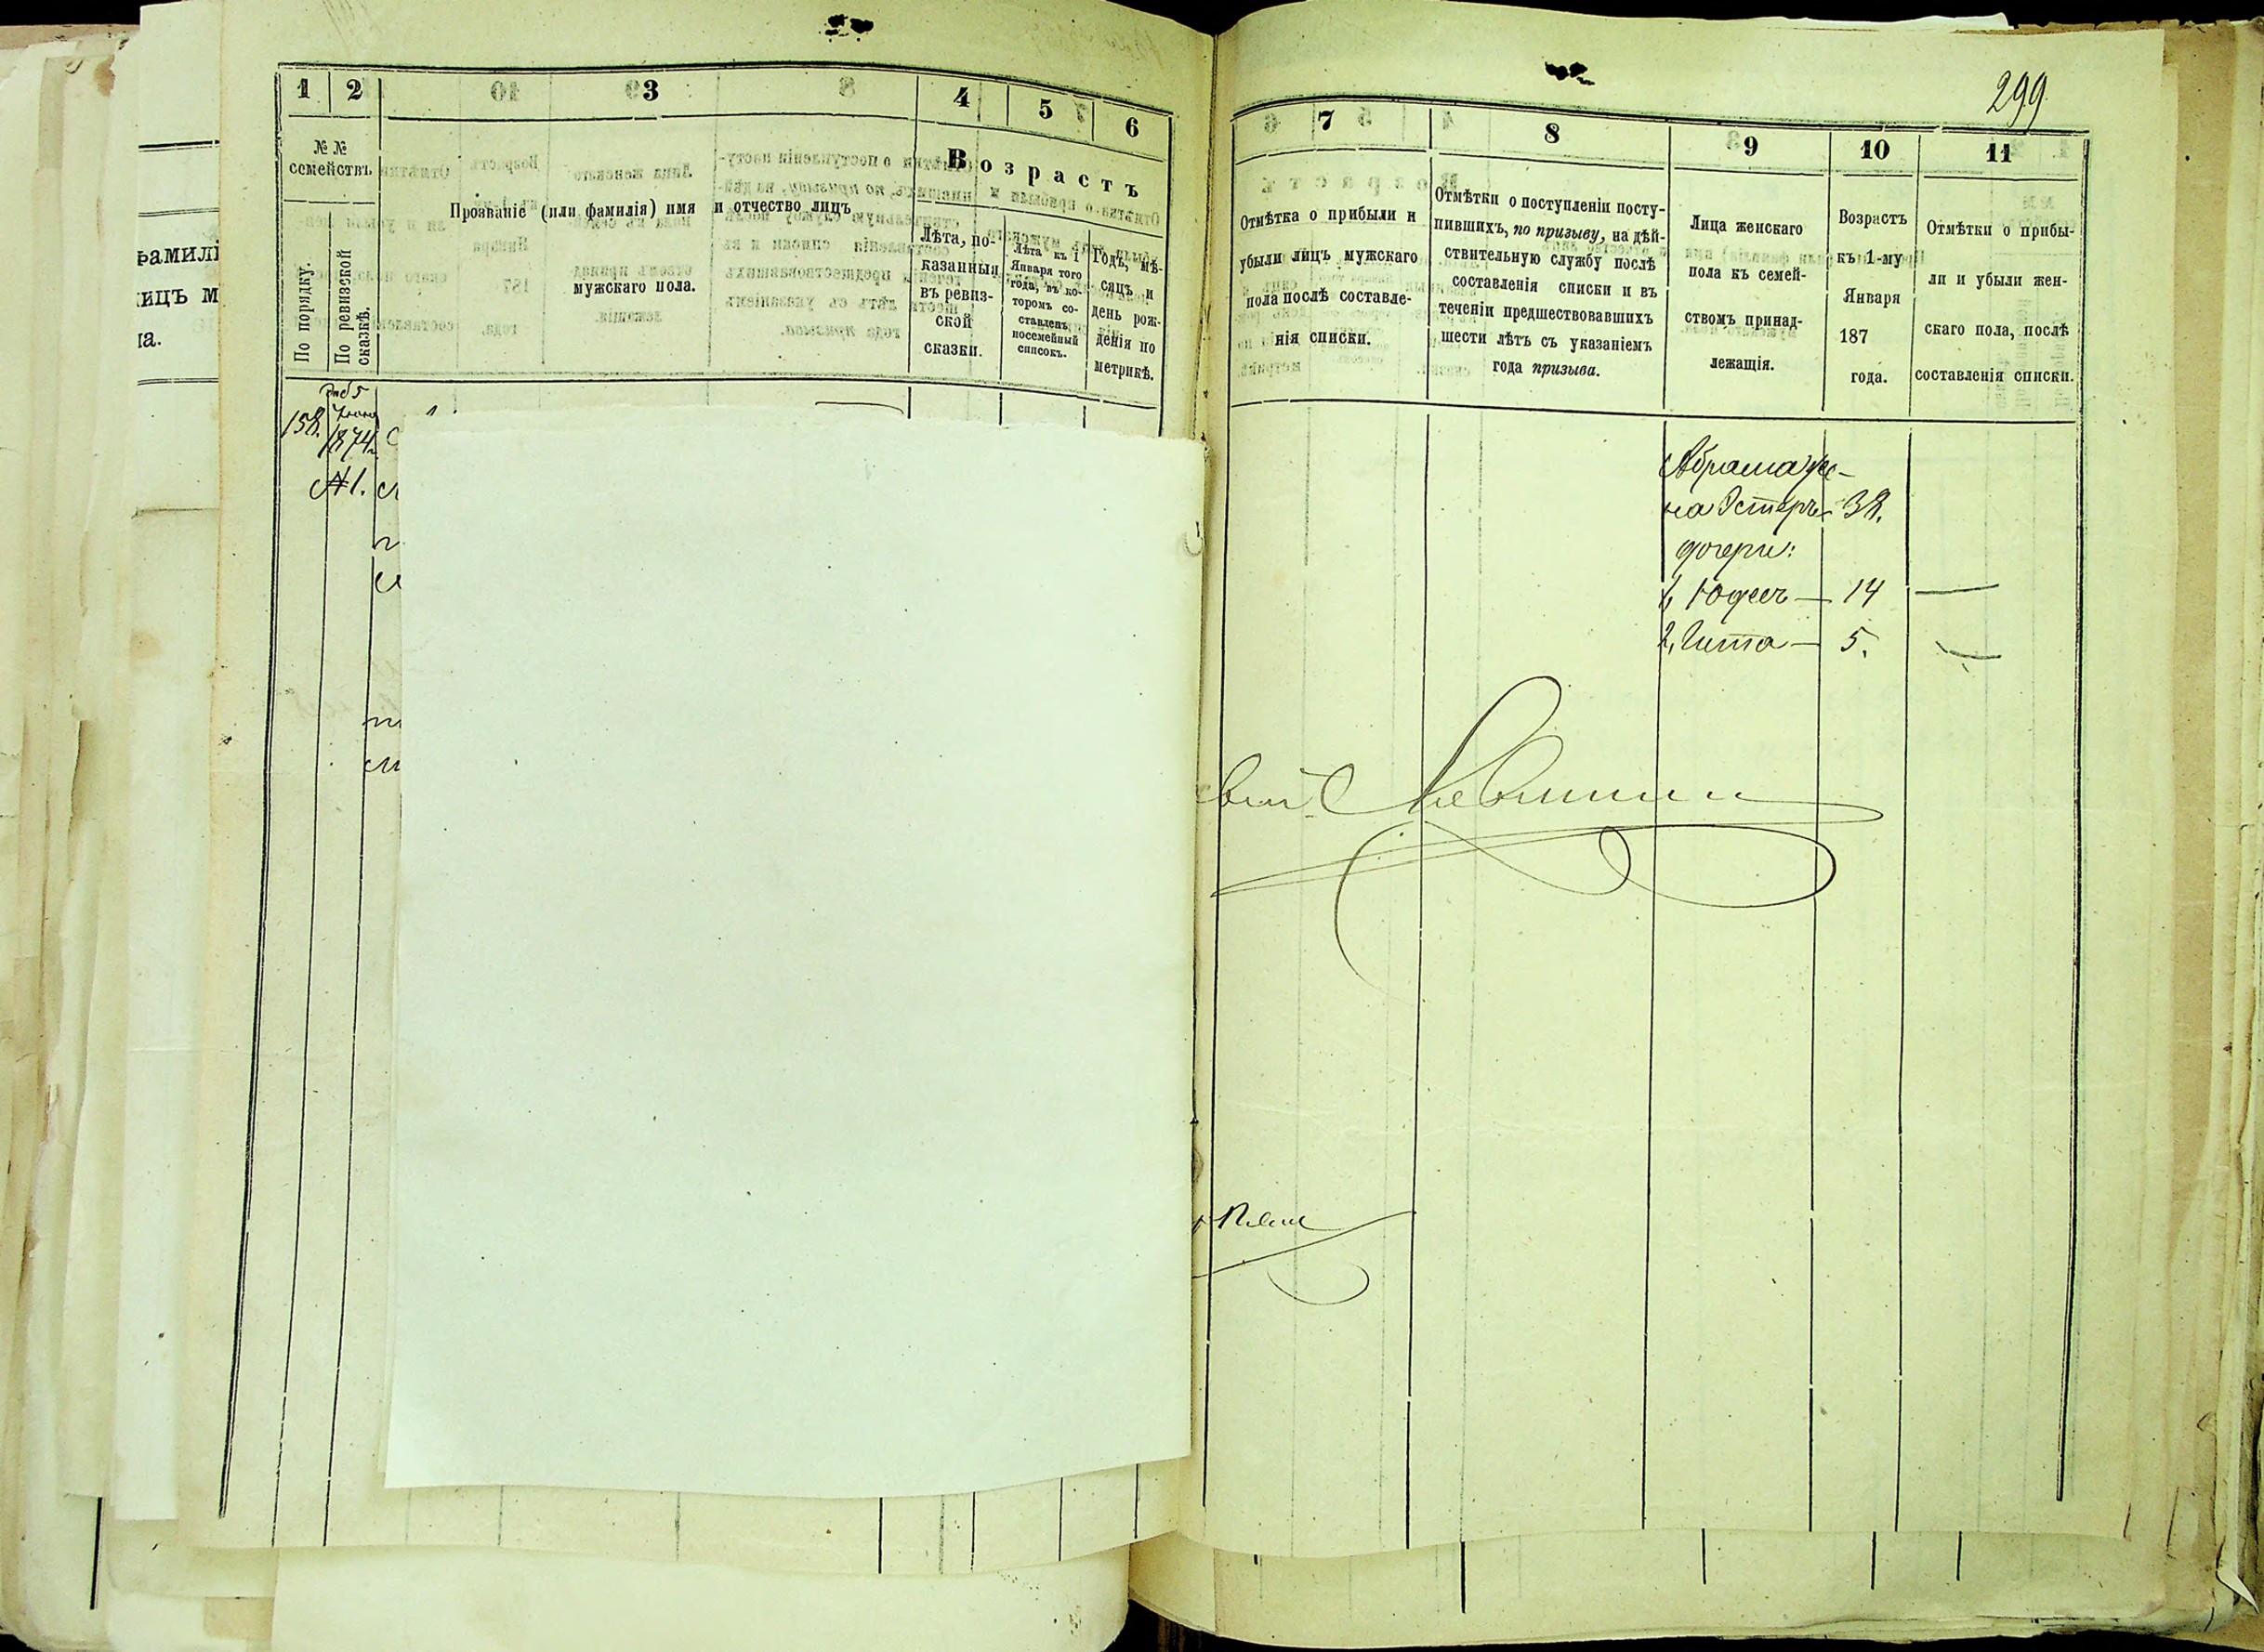 299
1 2 3 4 5 6
№ №
семействъ
По порядку.
По ревизской
сказкѣ.
Прозваніе (или фамилія) имя и отчество лицъ
мужскаго пола.
Возрастъ
Лѣта, по-
казанныя
въ ревиз-
ской
сказки.
Лѣта къ 1
Января того
года, въ ко-
торомъ со-
ставленъ
посемейный
списокъ.
Годъ, мѣ-
сяцъ и
день рож-
денія по
метрикѣ.
158.
1874
№1.
фамилі
ицъ м
ла.
7 8 9 10 11
Отмѣтка о прибыли и
убыли лицъ мужскаго
пола послѣ составле-
нія списки.
Отмѣтки о поступленіи посту-
пившихъ, по призыву, на дѣй-
ствительную службу послѣ
составленія списки и въ
теченіи предшествовавшихъ
шести лѣтъ съ указаніемъ
года призыва.
Лица женскаго
пола къ семей-
ствомъ принад-
лежащія.
Возрастъ
къ 1-му
Января
187
года.
Отмѣтки о прибы-
ли и убыли жен-
скаго пола, послѣ
составленія списки.
Абрама же-
на Эстеръ 38.
дочери:
1, Юдесъ — 14 —
2, Гита — 5. —